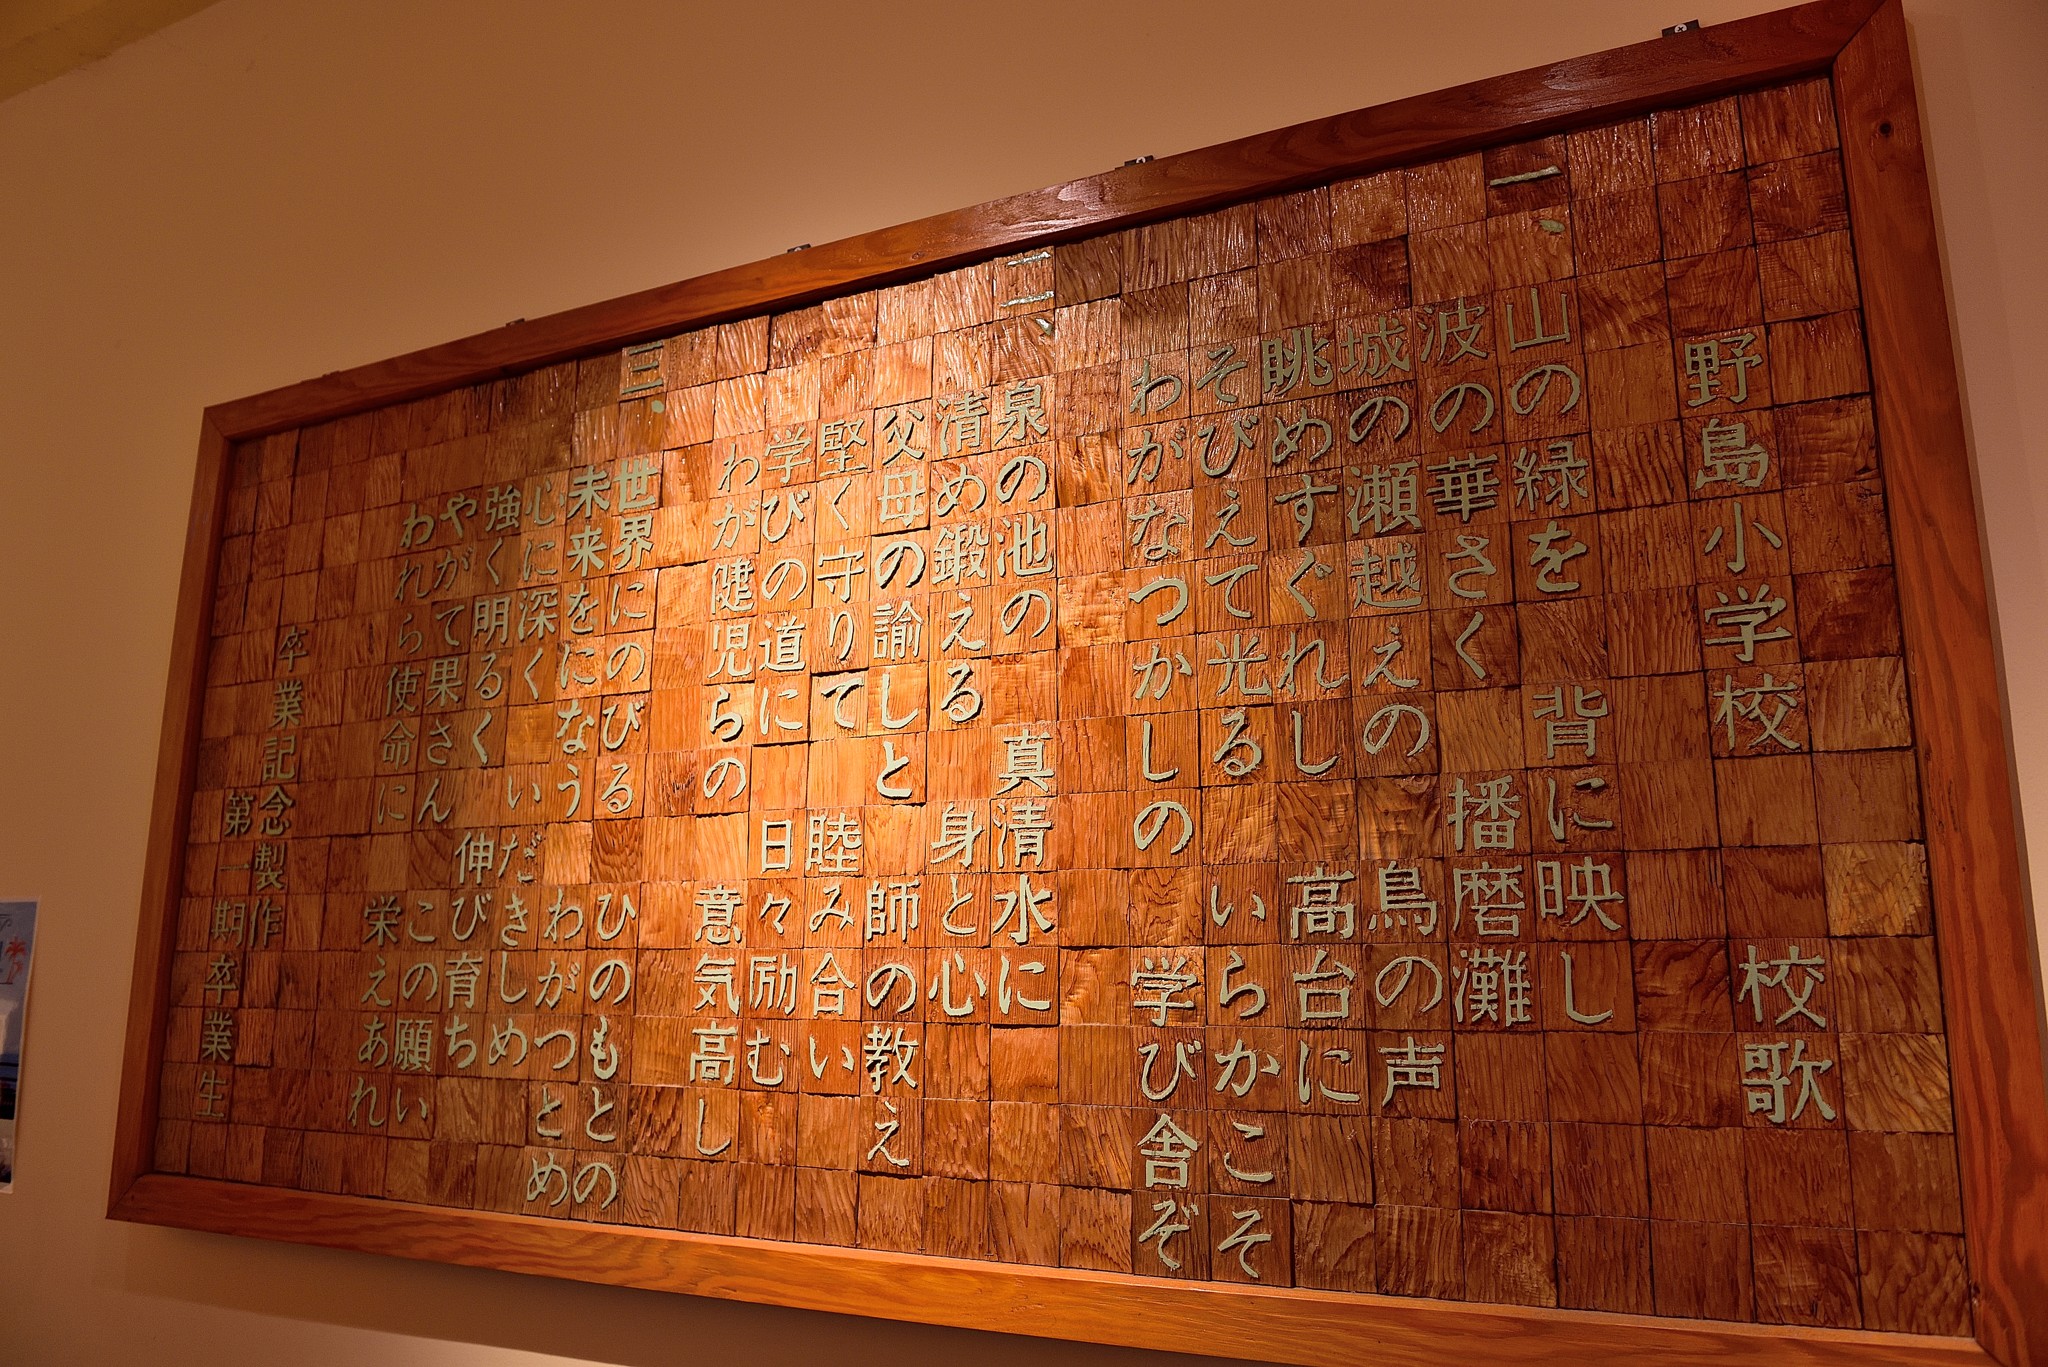 野島小学校　校歌
一、山の緑を　背に映し
波の華さく　播磨灘
城の瀬越えの　鳥の声
眺めすぐれし　高台に
そびえて光る　いらかこそ
わがなつかしの　学び舎ぞ
二、泉の池の　真清水に
清め鍛える　身と心
父母の諭しと　師の教え
堅く守りて　睦み合い
学びの道に　日々励む
わが健児らの　意気高し
三、世界にのびる　ひのもとの
未来をになう　わがつとめ
心に深く　いだきしめ
強く明るく　伸び育ち
やがて果さん　この願い
われら使命に　栄えあれ
卒業記念製作
第一期卒業生